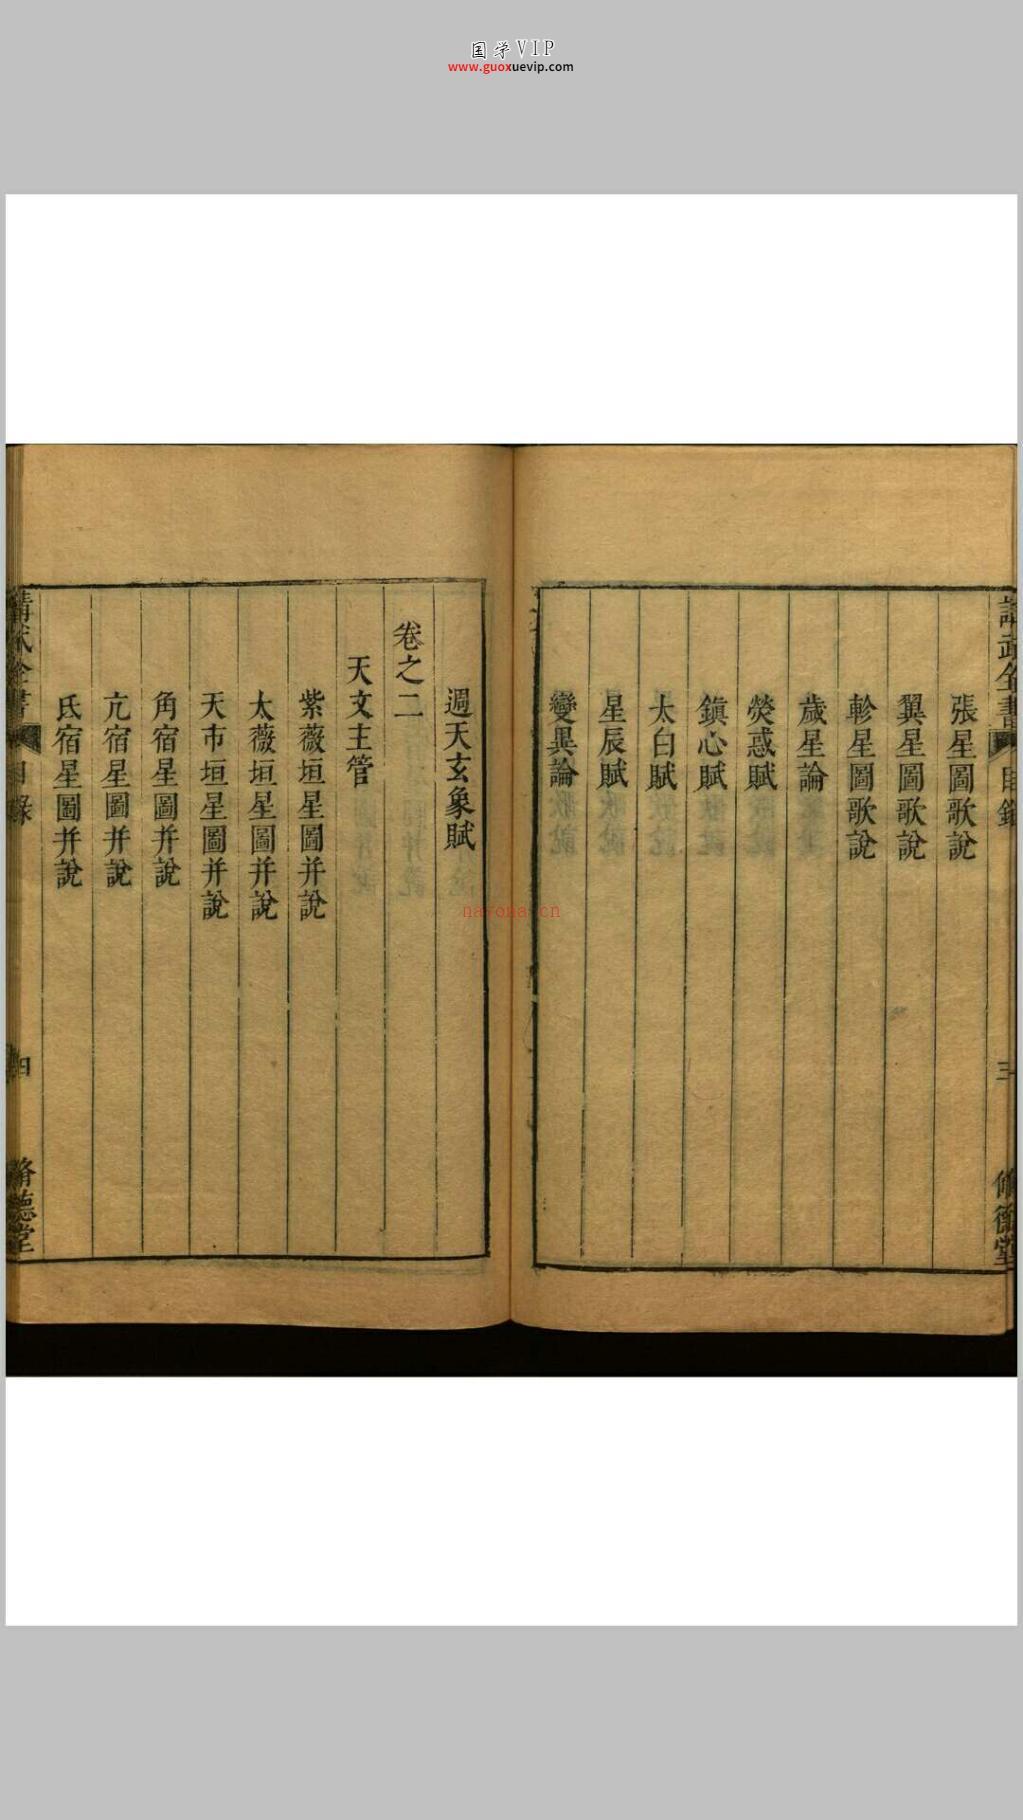 国学VIP
www.guoxuevip.com
張星圖歌說
翼星圖歌說
軫星圖歌說
歲星論
熒惑賦
鎮心賦
太白賦
星辰賦
變異論
週天玄象賦
卷之二
天文主管
紫薇垣星圖并說
太薇垣星圖并說
天市垣星圖并說
角宿星圖并說
亢宿星圖并說
氐宿星圖并說
nayona.cn